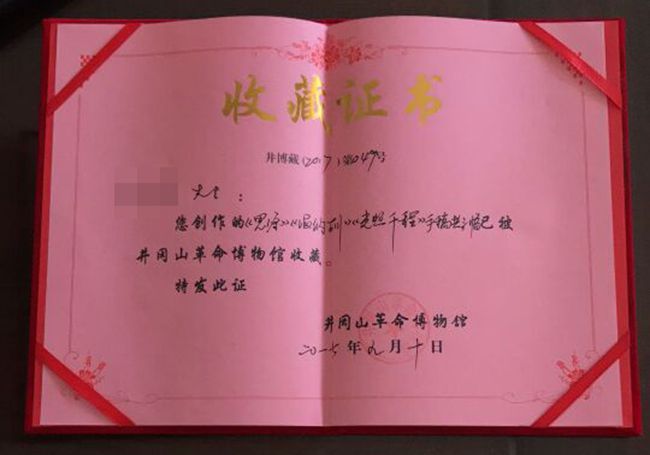 收藏证书
井博藏(2017)第049号
您创作的《思源》《》《光照千程》手稿共3幅已被
井冈山革命博物馆收藏。
特发此证
井冈山革命博物馆
二〇一七年九月十日